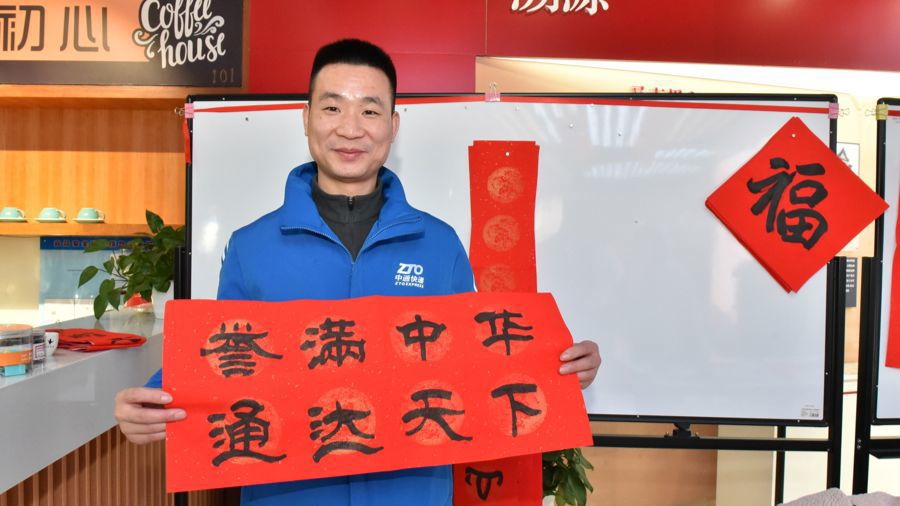 初心
Coffee
house
101
福
ZTO
中通快递
ZTO EXPRESS
誉满中华
通达天下